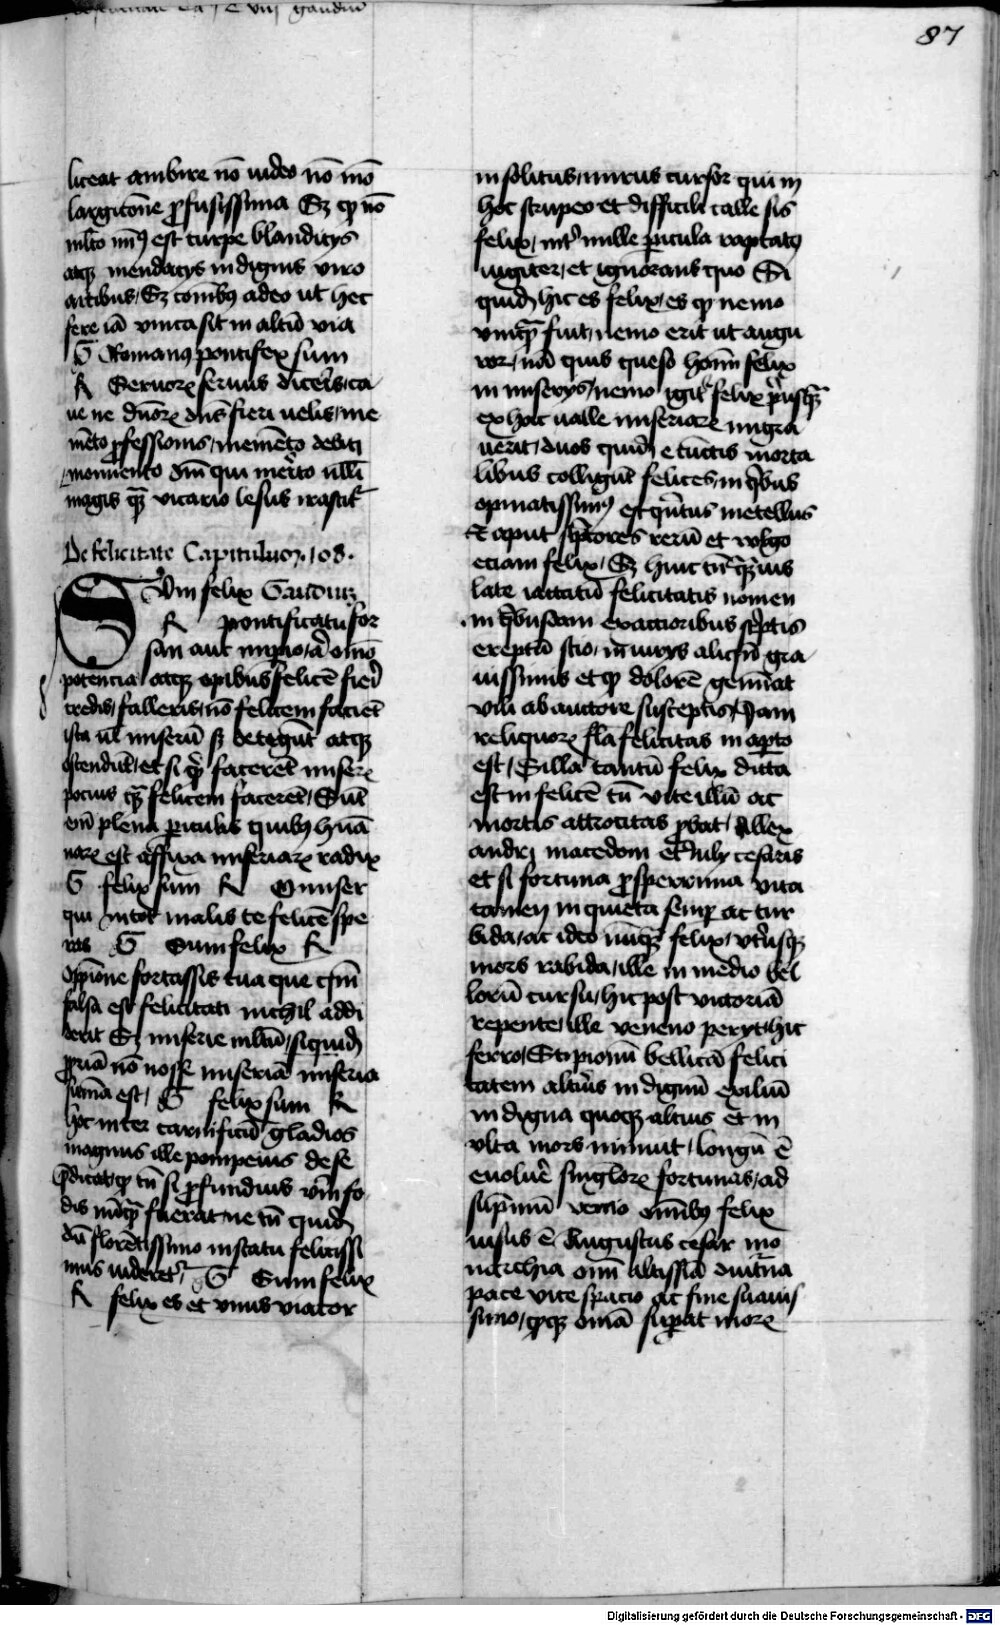 87
liceat ambire nō video nō mō
largitōne ꝓfusissima Sꝫ qꝫ nō
mlto minꝰ est turpe blanditijs
atqꝫ mendacijs indignis viro
artibus / Sꝫ cōmibꝰ adeo ut hec
fere iā vnica sit in altū via
G Romanꝰ pontifex sum
R Seruorꝝ seruus diceris / ca
ue ne dn̄orꝝ dn̄s fieri uelis / me
mēto ꝓfessionis / memēto debiti
memento dn̄i qui merito nulli
magis qꝫ vicario lesus irascit̄
De felicitate Capitulum / 108 .
Sum felix Gaudiū
R pontificatu for
san aut imꝑio / a omō
potencia atqꝫ opibus felicē fieri
credis / falleris / nō felicem faciēt
ista ul miserū sꝫ detegūt atqꝫ
ostendūt / et si q̄ facerēt miserꝝ
pocius qꝫ felicem facerēt / Sūt
em̄ plena ꝑiculis quibꝰ humā
narꝝ est affixa miseriarꝝ radix
G felix sum R O miser
qui in tot malis te felicē spe
ras G Sum felix R
Opiōne fortassis tua que cum
falsa est felicitati nichil addi
derit Sꝫ miserie mltū / siquidē
ꝓpriā nō nosse miseriā miseria
sūma est / G felix sum R
hoc inter carnificū gladios
magnus ille pompeius de se
p̄dicat / qꝫ tn̄ si ꝓfundius verū fo
dis nūqꝫ fuerat ne tn̄ quidē
dū florētissimo in statu felicissi
mus uideret̄ / G Sum felix
R felix es et vnus viator
insolitus / mirus cursor qui in
hoc strupeo et difficili calle sis
felix / int̄ mille ꝑicula raptatꝰ
iugiter / et ignorans quo Si
quidē hic es felix / es qꝫ nemo
vnqꝫ fuit / nemo erit ut augu
ror / nā quis queso homī felix
in miserijs / nemo igit̄ felix p̄usqꝫ
ex hac ualle miseriarꝝ migra
uerit / duos quidē e cunctis morta
libus colligūt felices / in q̄bus
opinatissimꝰ est quintus metellus
Et aput scptores rerū et volgo
eciam felix / Sꝫ huic tn̄ qꝫuis
late iactatū felicitatis nomen
in q̄busdam exactioribus scriptis
ereptū scio / iniurijs aliqn̄ gra
uissimis et qꝫ dolorē geminat
vili ab auctore susceptis / Nam
reliquorꝝ falsa felicitas in aperto
est / Silla tantū felix dicta
est infelicē tn̄ vite illū ac
mortis attrocitas ꝓbat / Allex
andri macedom et Iulij cesaris
et si fortuna ꝓsperrima vita
tamen inquieta semꝑ ac tur
bida / ac ideo nūqꝫ felix / vtriusqꝫ
mors rabida / ille in medio bel
lorū cursu / hic post victoriā
repente / ille veneno perijt / hic
ferro / Scipionū bellicā felici
tatem alterius indignū exiliū
indigna quoqꝫ altius et in
vlta mors minuit / longū ē
euoluere singlorꝝ fortunas / ad
sup̄mū venio omībꝰ felix
uisus ē Augustus cesar mo
narchia omī altissīa diuturna
pace vite spacio ac fine suauis
simo / qꝫqꝫ omīa suꝑat morꝝ
Digitalisierung gefördert durch die Deutsche Forschungsgemeinschaft - DFG